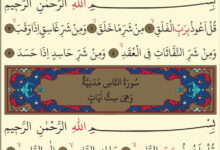 بِسْمِ اللهِ الرَّحْمٰنِ الرَّحِيمِ
قُلْ اَعُوذُ بِرَبِّ الْفَلَقِ ﴿١﴾ مِنْ شَرِّ مَا خَلَقَ ﴿٢﴾ وَمِنْ شَرِّ غَاسِقٍ اِذَا وَقَبَ ﴿٣﴾
وَمِنْ شَرِّ النَّفَّاثَاتِ فِي الْعُقَدِ ﴿٤﴾ وَمِنْ شَرِّ حَاسِدٍ اِذَا حَسَدَ ﴿٥﴾
سُورَةُ النَّاسِ مَدَنِيَّةٌ
وَهِيَ سِتُّ اٰيَاتٍ
بِسْمِ اللهِ الرَّحْمٰنِ الرَّحِيمِ